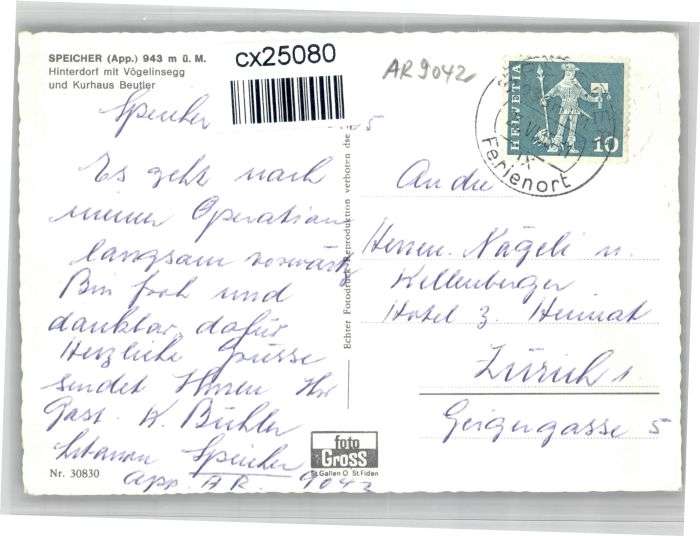 SPEICHER (App.) 943 m ü. M.
Hinterdorf mit Vögelinsegg
und Kurhaus Beutler
cx25080
AR 9042
HELVETIA
10
Ferienort
Speicher
Es geht nach
meiner Operation
langsam vorwärts
Bin froh und
dankbar dafür
Herzliche Grüsse
sendet Ihnen Ihr
Gast. K. Bühler
Speicher
App. A R. 9042
Nr. 30830
Echter Fotodruck Reproduktion verboten
foto
Gross
St. Gallen O St Fiden
An die
Herren. Nägeli u.
Kellenberger
Hotel z. Heimat
Zürich 1.
Geigergasse 5